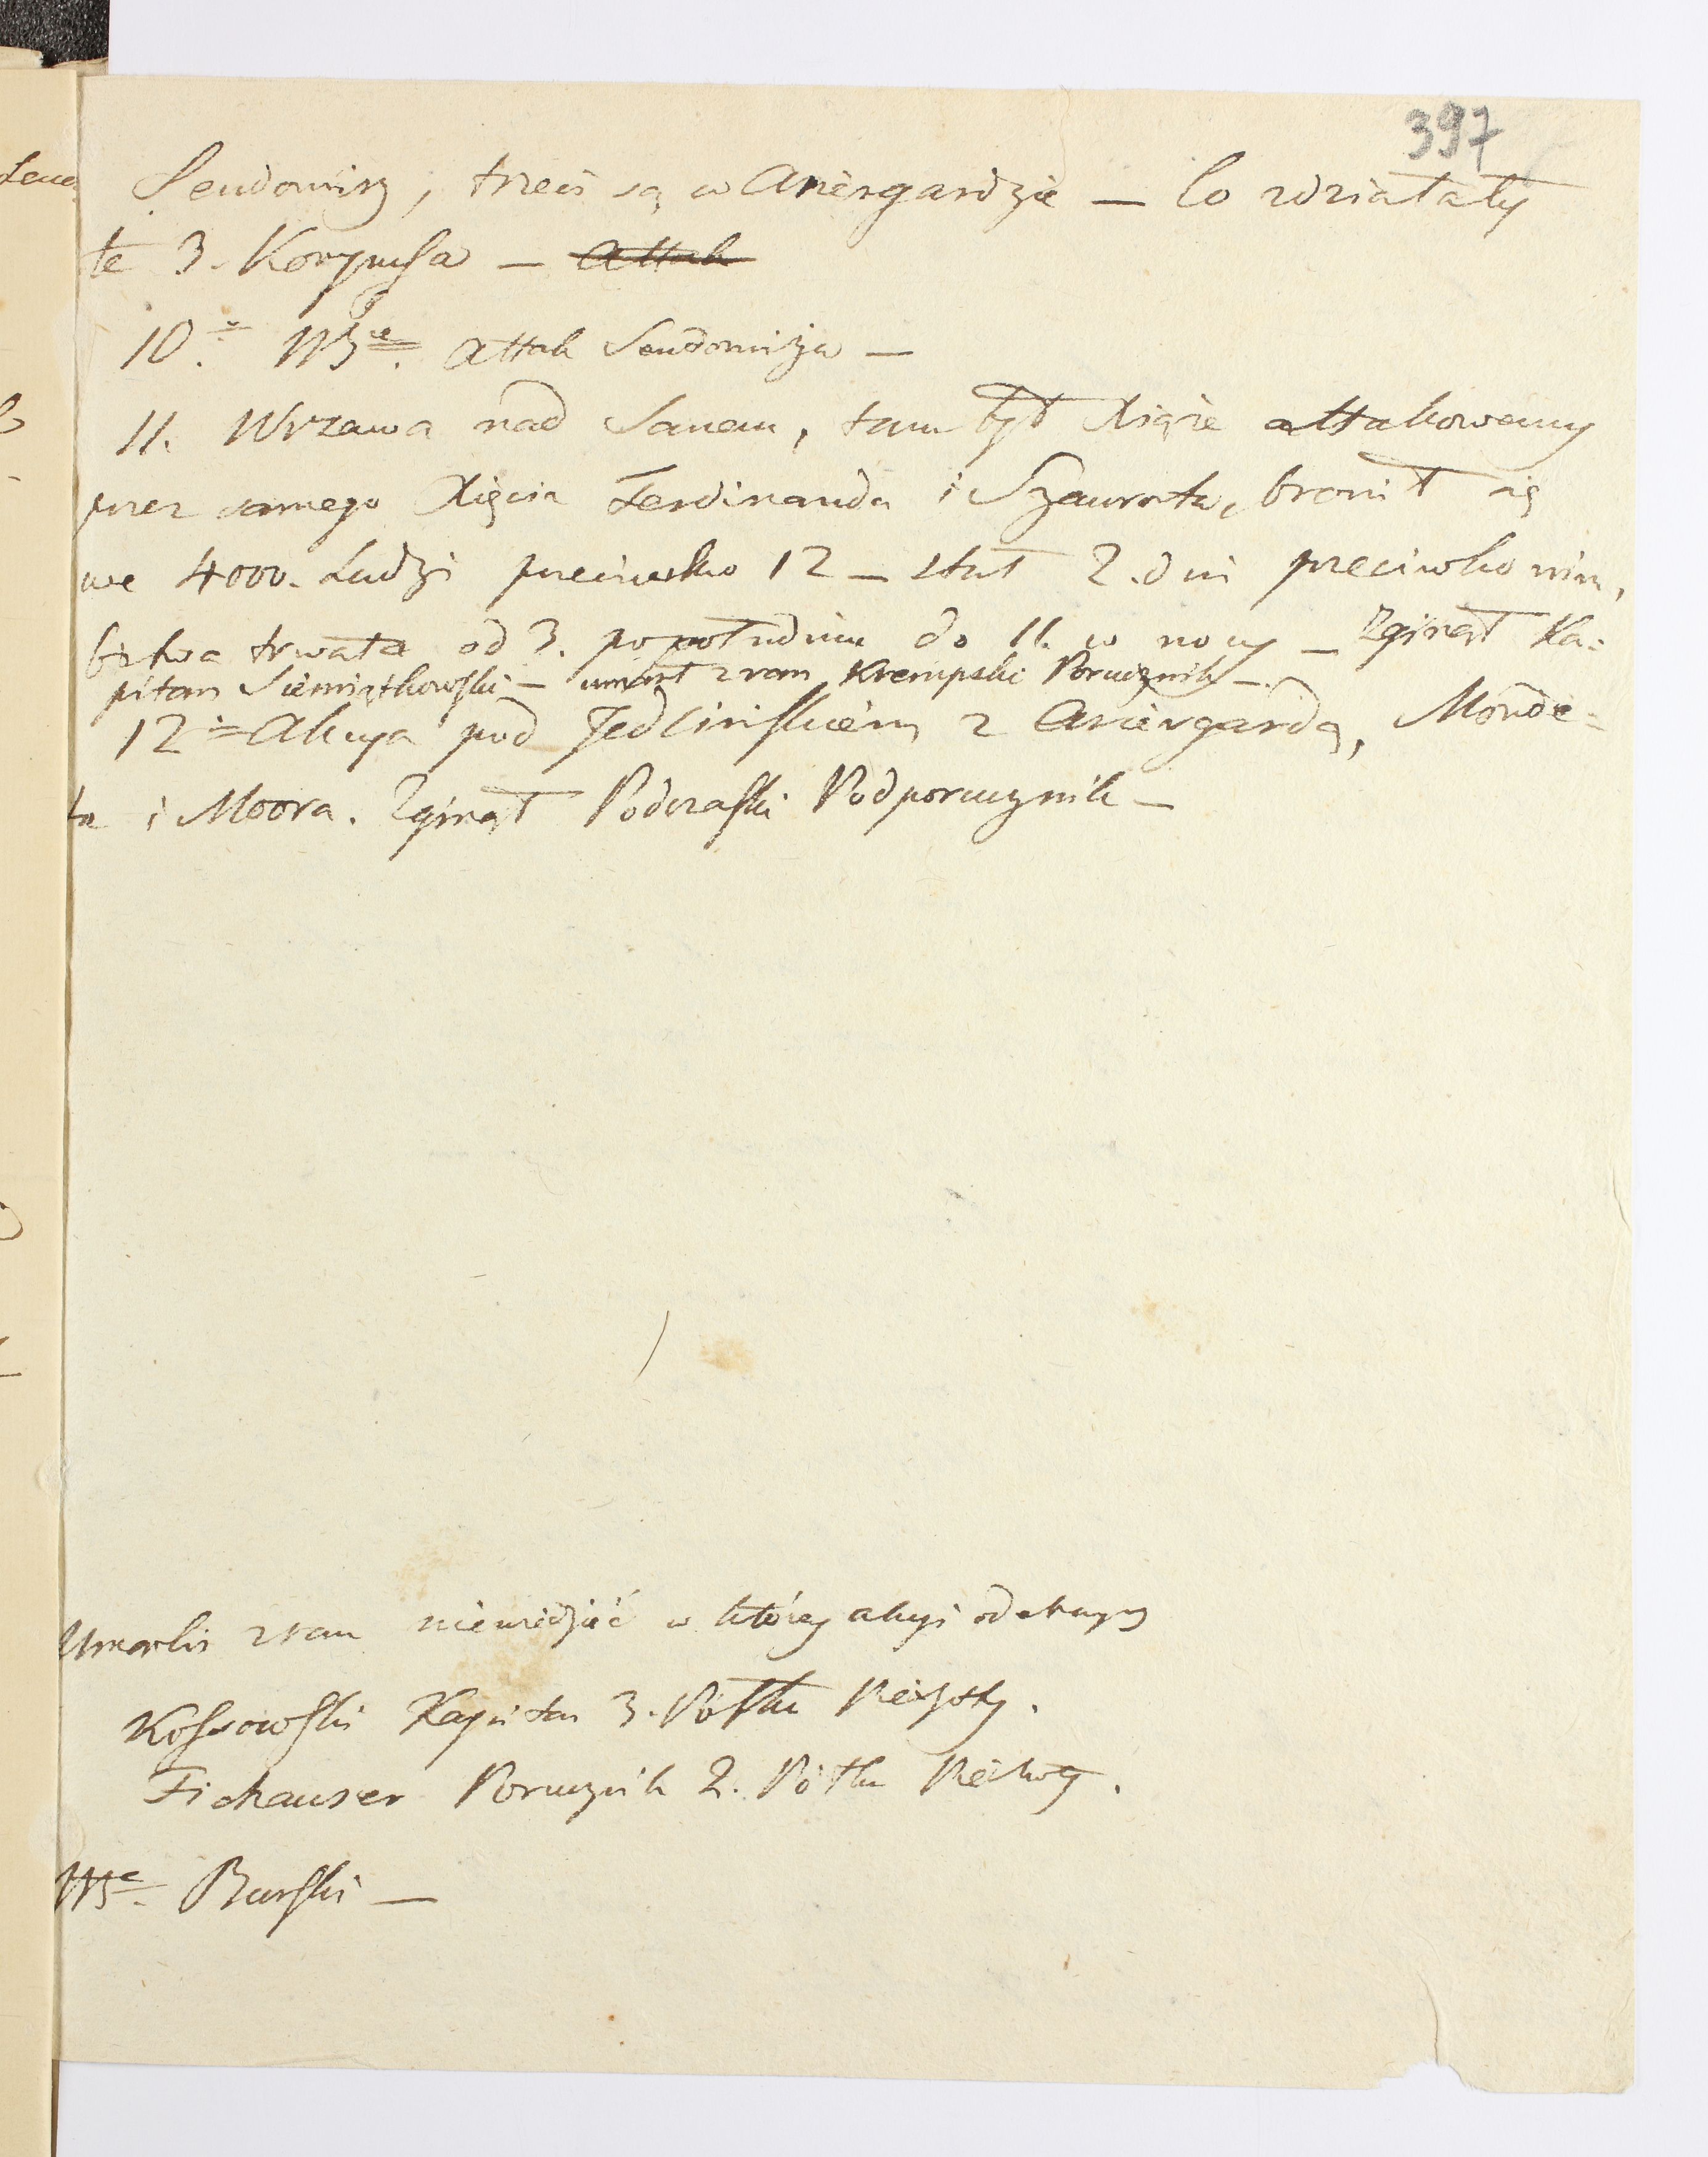 397
Sendomirz, trzeci są w Arièrgardzie — Co zdziałały
te 3. Korpusa — Attak
10.° W3ce. Attak Sendomirza —
11. Wrzawa nad Sanem, tam był Xiąże attakowany
przez samego Xięcia Ferdinanda i Szaurota, bronił się
we 4000. Ludzi przeciwko 12 — stał 2. dni przeciwko nim,
bitwa trwała od 3. po południu do 11. w nocy — Zginął Ka=
pitan Siemiątkowski — umarł z ran Krempski Porucznik —
12° Akcya pod Jedlinskiem z Arièrgardą, Monde=
ta i Moora. Zginął Podczaski Podporucznik —
Umarli z ran niewiedzieć w której akcyi
Kossowski Kapitan 3. Półku Piechoty.
Fichauser Porucznik 2. Półku Piechoty.
Burski —